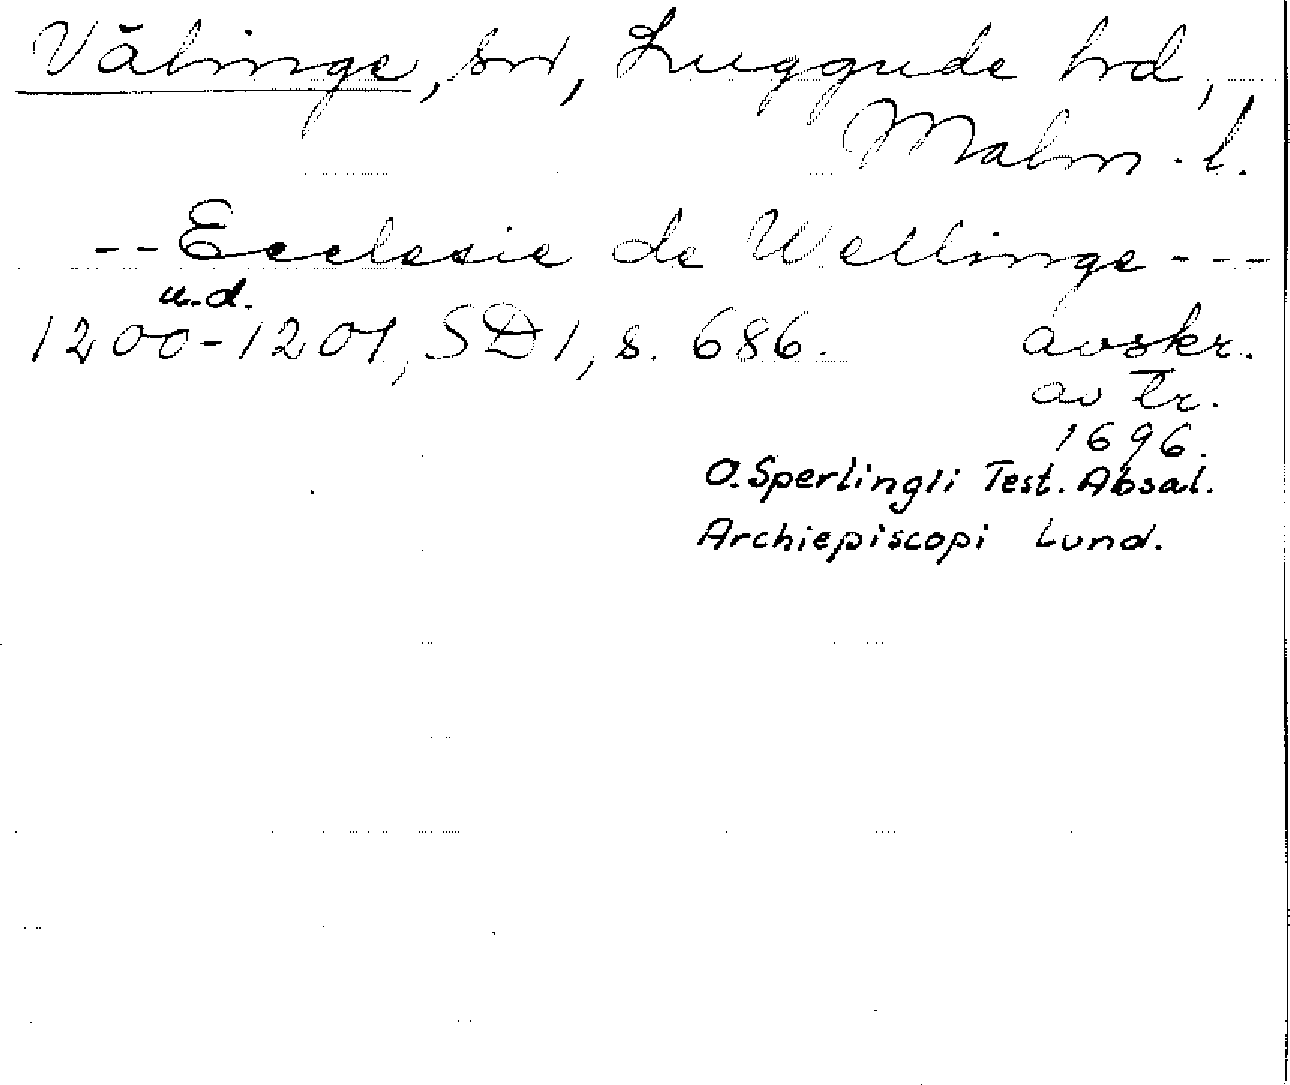 Välinge, sn, Luggude hrd,
Malm. l.
-- Ecclesie de Wellinge ---
u.d.
1200-1201, SD 1, s. 686. avskr.
av tr.
1696.
O. Sperlingli Test. Absal.
Archiepiscopi Lund.